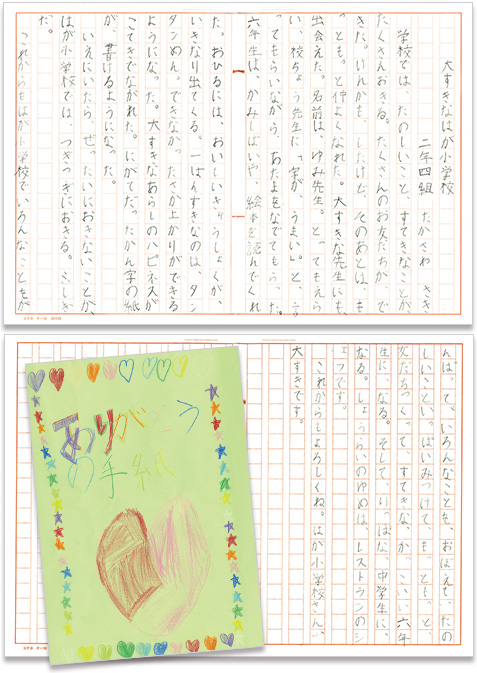 大すきなはが小学校
二年四組 たかさわ さき
学校では、たのしいこと、すてきなことが、
たくさんおきる。たくさんのお友だちが、で
きた。けんかも、したけど、そのあとは、も
っとも。と仲よくなれた。大すきな先生にも、
出会えた。名前は、ゆみ先生。とってもえら
い、校ちょう先生に「字が、うまい。」と、言
ってもらいながら、あたまをなでてもらった。
六年生は、かみしばいや、絵本を読んでくれ
た。おひるには、おいしいきゅうしょくが、
いきなり出てくる。一ばんすきなのは、タン
タンめん。できなかったさか上がりができる
ようになった。大すきなあらしのハピネスが
こてきでながれた。にがてだったかん字の紙
が、書けるようになった。
いえにいたら、ぜったいにおきないことが、
はが小学校では、つぎつぎにおきる。ふしぎ
だ。
これからもはが小学校でいろんなことをが
んばって、いろんなことを、おぼえて、たの
しいこといっぱいみつけて、もっともっと、
友だちつくって、すてきな、かっこいい六年
生に、なる。そして、りっぱな、中学生に、
なる。しょうらいのゆめは、レストランのシ
ェフです。
これからもよろしくね。はが小学校さん、
大すきです。
ありがとう
の手紙